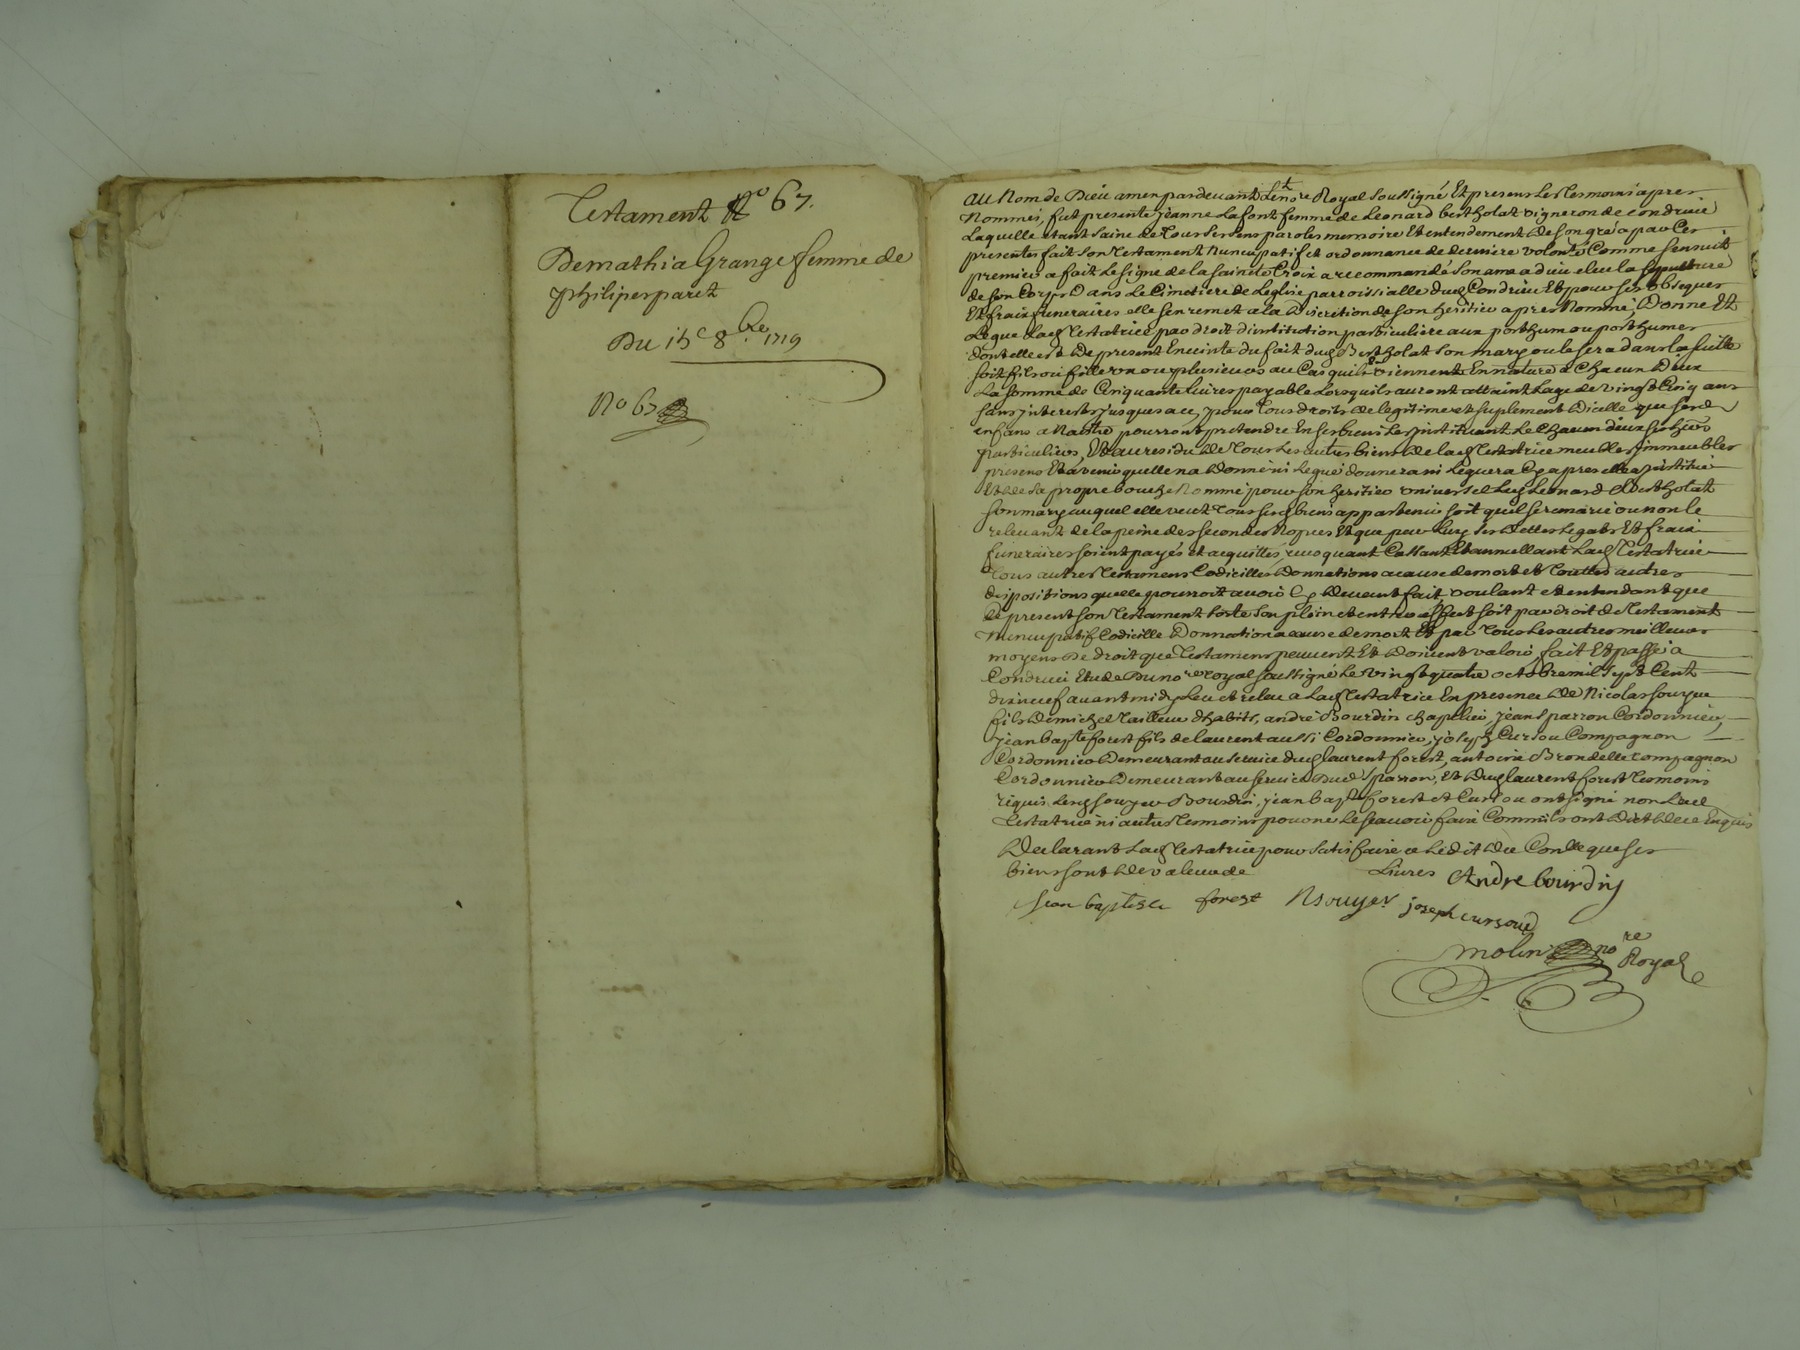 Testament No 67.
De mathia Grange femme de
philiper paret
Du 15e 8bre 1719
No 67
au Nom de Dieu amen pardevant Le nore Royal soussigné Et presens Les Tesmoins apres
Nommés, fut presente jeanne Lafont femme de Leonard bertholat vigneron de condrieu
Laquelle etant saine de Tous ses sens parolles memoire Et entendement de son gré a par Ces
presentes fait son Testament Nuncupatif et ordonnance de derniere volonté Comme sensuit
premier a fait Le signe de la sainte Croix a recommandé son ame a dieu elleu la sepulture
de son Corps Dans Le Cimetiere de Leglise parroissialle dud Condrieu Et pour ses obseques
Et frais funeraires elle sen remet a la Discretion de son heritier apres Nommé, Donne Et
Legue Lad Testatrice par droit dinstitution particuliere aux posthume ou posthumes
dont elle est De present Enceinte du fait dud Bertholat son mary ou le sera dans la suitte
soit fils ou fille un ou plusieurs au Cas quils viennent En nature a Chacun Deux
La somme de Cinquante livres payable Lorsquils auront attaint Lage de vingt Cinq ans
sans jnterests jusques a ce, pour Tous droits de legitime et suplement dicelle que sesd
enfans a Naistre pourront pretendre En ses biens Les jnstituant Le Chacun deux ses hers
particuliers, Et au residu de Tous Les autres biens de lad Testatrice meubles jmmeubles
presens Et avenir quelle na donné ni Legué donnera ni Leguera Cy apres elle a jnstitué
Et de sa propre bouche Nommé pour son heritier universel Led Leonard Bertholat
son mary auquel elle veut Tous sesd biens appartenir soit quil se remarie ou non le
relevant de la peine des secondes Nopces Et que par Luy ses dettes Legats Et frais
funeraires soient payés et acquittés, revoquant Cassant Et annullant Lad Testatrice
Tous autres Testamens Codicilles Donnations a cause de mort et Touttes autres
dispositions quelle pourroit avoir Cy devant fait, voulant et entendant que
le present son Testament sorte son plein et entier effect soit par droit de Testament
Nuncupatif Codicille Donnation a cause de mort Et par Tous Les autres meilleurs
moyens de droit que Testamens peuvent Et doivent valoir, fait Et passé a
Condrieu Etude Du nore royal soussigné Le vingt quatre octobre mil sept Cent
dixneuf avant midy Leu et releu a Lad Testatrice En presence de Nicolas souyer
fils de michel Tailleur dhabits, andré Bourdin chapelier, jean sparron Cordonnier,
jean bapte forest fils de laurent aussi Cordonnier, joseph Cursou Compagnon
Cordonnier Demeurant au service dud laurent forest, antoine Brondelle compagnon
Cordonnier Demeurant au service Dud sparron, Et dud laurent forest Tesmoins
requis. Lesd souyer Bourdin, jean bapte forest et Cursou ont signé non Lad
Testatrice ni autres Tesmoins pour ne le scavoir faire Comm'ils ont dit de ce Enquis
Declarant Lad Testatrice pour satisfaire a Lédit du Conlle que ses
biens sont de valeur de Livres
Andre bourdin
jean baptiste forest Nsouyer joseph cursoud
molin nore Royal